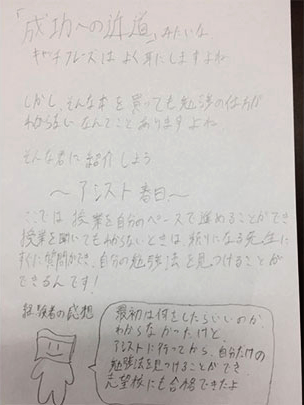 「成功への近道」みたいな
キャッチフレーズはよく耳にしますよね
しかし、そんな本を買っても勉強の仕方が
わからないなんてことありますよね
そんな君に紹介しよう
〜アシスト春日〜
ここでは授業を自分のペースで進めることができ
授業を聞いてもわからないときは、頼りになる先生に
すぐに質問ができ、自分の勉強法を見つけることが
できるんです!
経験者の感想
最初は何をしたらいいのか
わからなかったけど、
アシストに行ってから、自分だけの
勉強法を見つけることができ
志望校にも合格できたよ